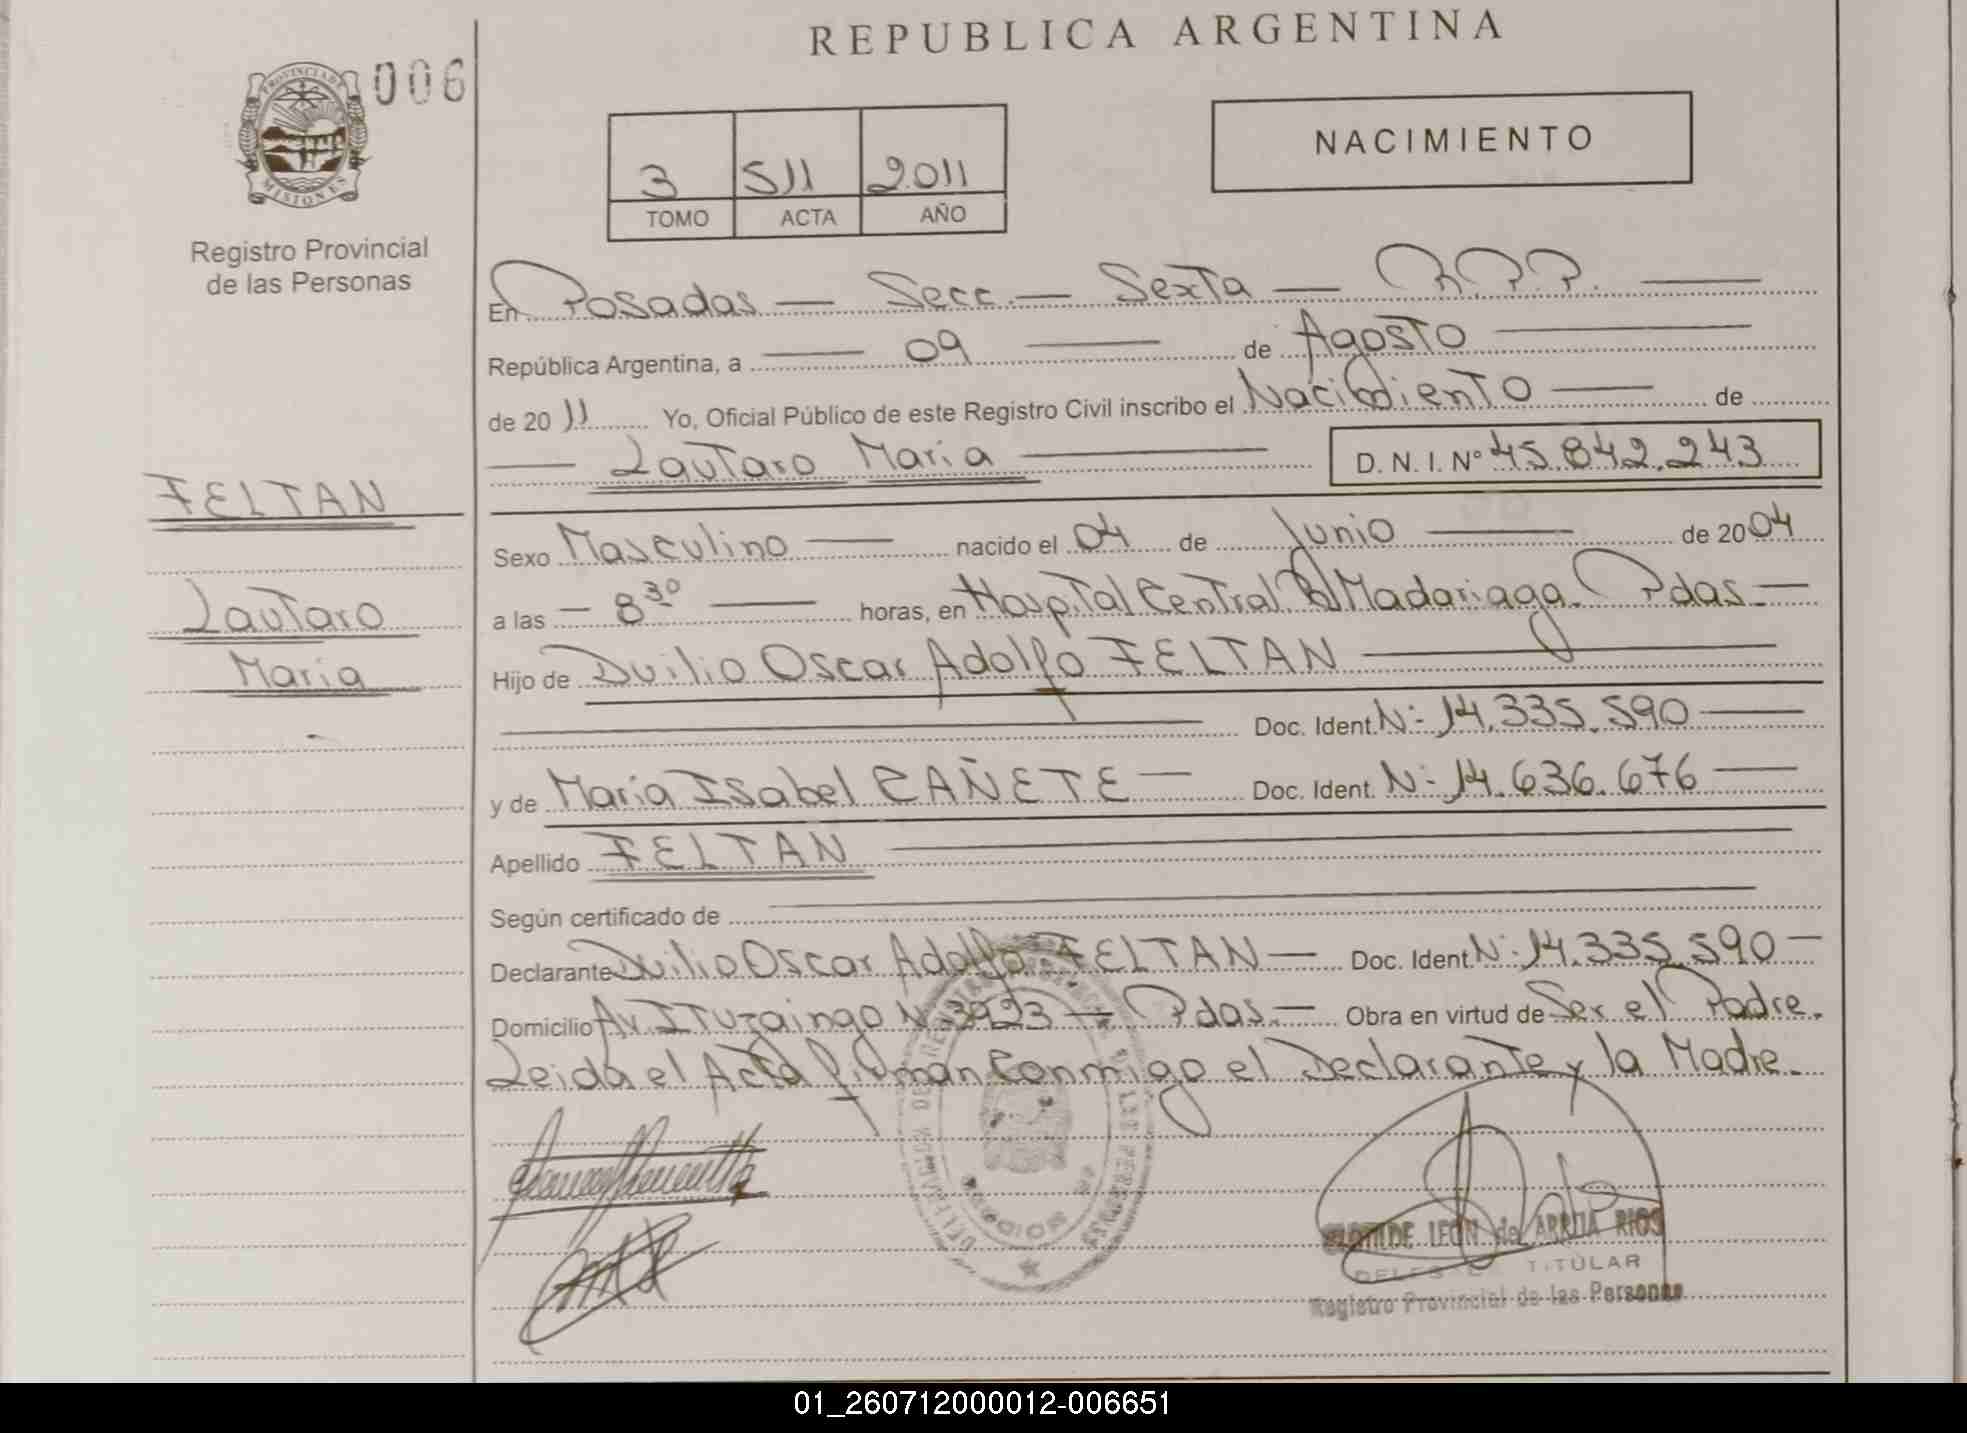 REPUBLICA ARGENTINA
006
PROVINCIA DE
MISIONES
Registro Provincial
de las Personas
3 511 2011
TOMO ACTA AÑO
NACIMIENTO
En Posadas — Secc. — Sexta — R.P.P. —
República Argentina, a — 09 — de Agosto —
de 2011 Yo, Oficial Público de este Registro Civil inscribo el Nacimiento — de
— Lautaro Maria — D. N. I. Nº 45.842.243
FELTAN
Lautaro
Maria
Sexo Masculino — nacido el 04 de Junio — de 2004
a las — 8 30 — horas, en Hospital Central R Madariaga. Pdas —
Hijo de Duilio Oscar Adolfo FELTAN —
— Doc. Ident. Nº 14.335.590 —
y de Maria Isabel CAÑETE — Doc. Ident. Nº 14.636.676 —
Apellido FELTAN —
Según certificado de —
Declarante Duilio Oscar Adolfo FELTAN — Doc. Ident Nº 14.335.590 —
Domicilio Av. Ituzaingo Nº 3923 — Pdas. — Obra en virtud de Ser el Padre.
Leida el Acta firman Conmigo el Declarante y la Madre.
CLOTILDE LEON de ARRUA RIOS
DELEGADA TITULAR
Registro Provincial de las Personas
01_260712000012-006651